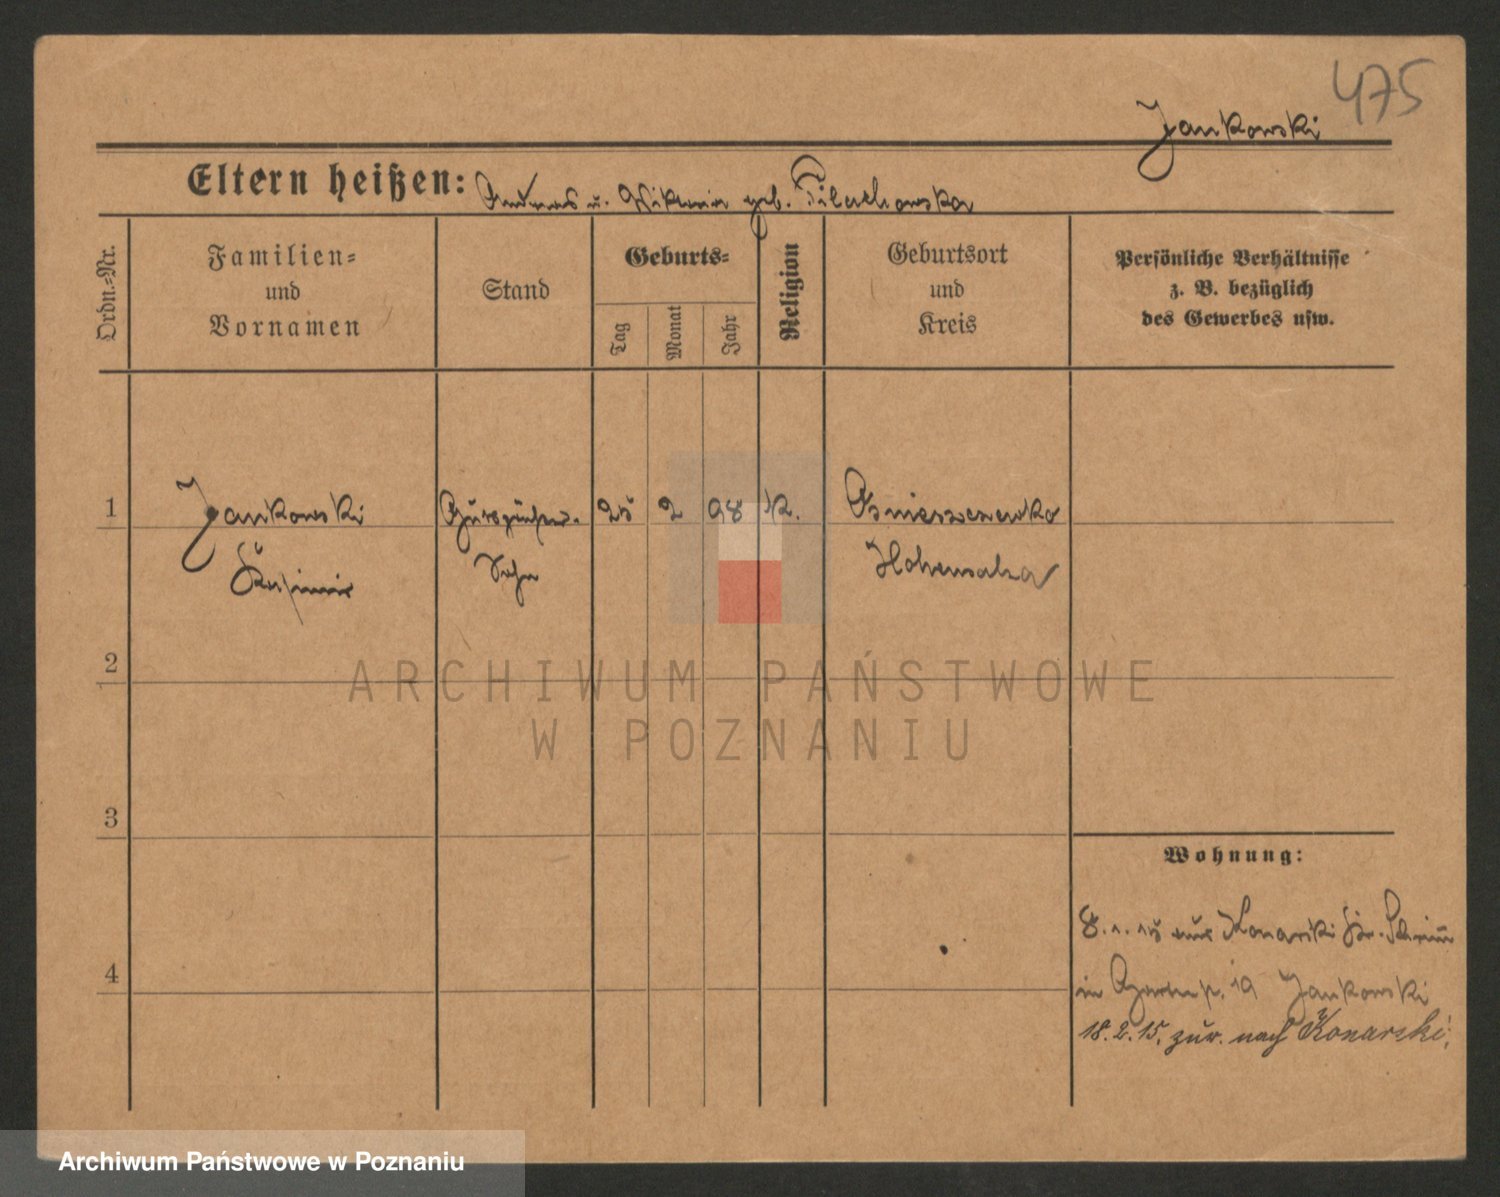 475
Jankowski
Eltern heißen: Andreas u. Wiktoria geb.
Ordn.-Nr.
Familien-
und
Vornamen
Stand
Geburts-
Tag
Monat
Jahr
Religion
Geburtsort
und
Kreis
Persönliche Verhältnisse
z. B. bezüglich
des Gewerbes usw.
1
Jankowski
Kasimir
Sohn
25 2 98 K.
Hohensalza
2
3
4
Wohnung:
8.1.15 aus Konarski Kr. Schrimm
in 19 Jankowski
18.2.15. zur. nach Konarski.
ARCHIWUM PAŃSTWOWE
W POZNANIU
Archiwum Państwowe w Poznaniu